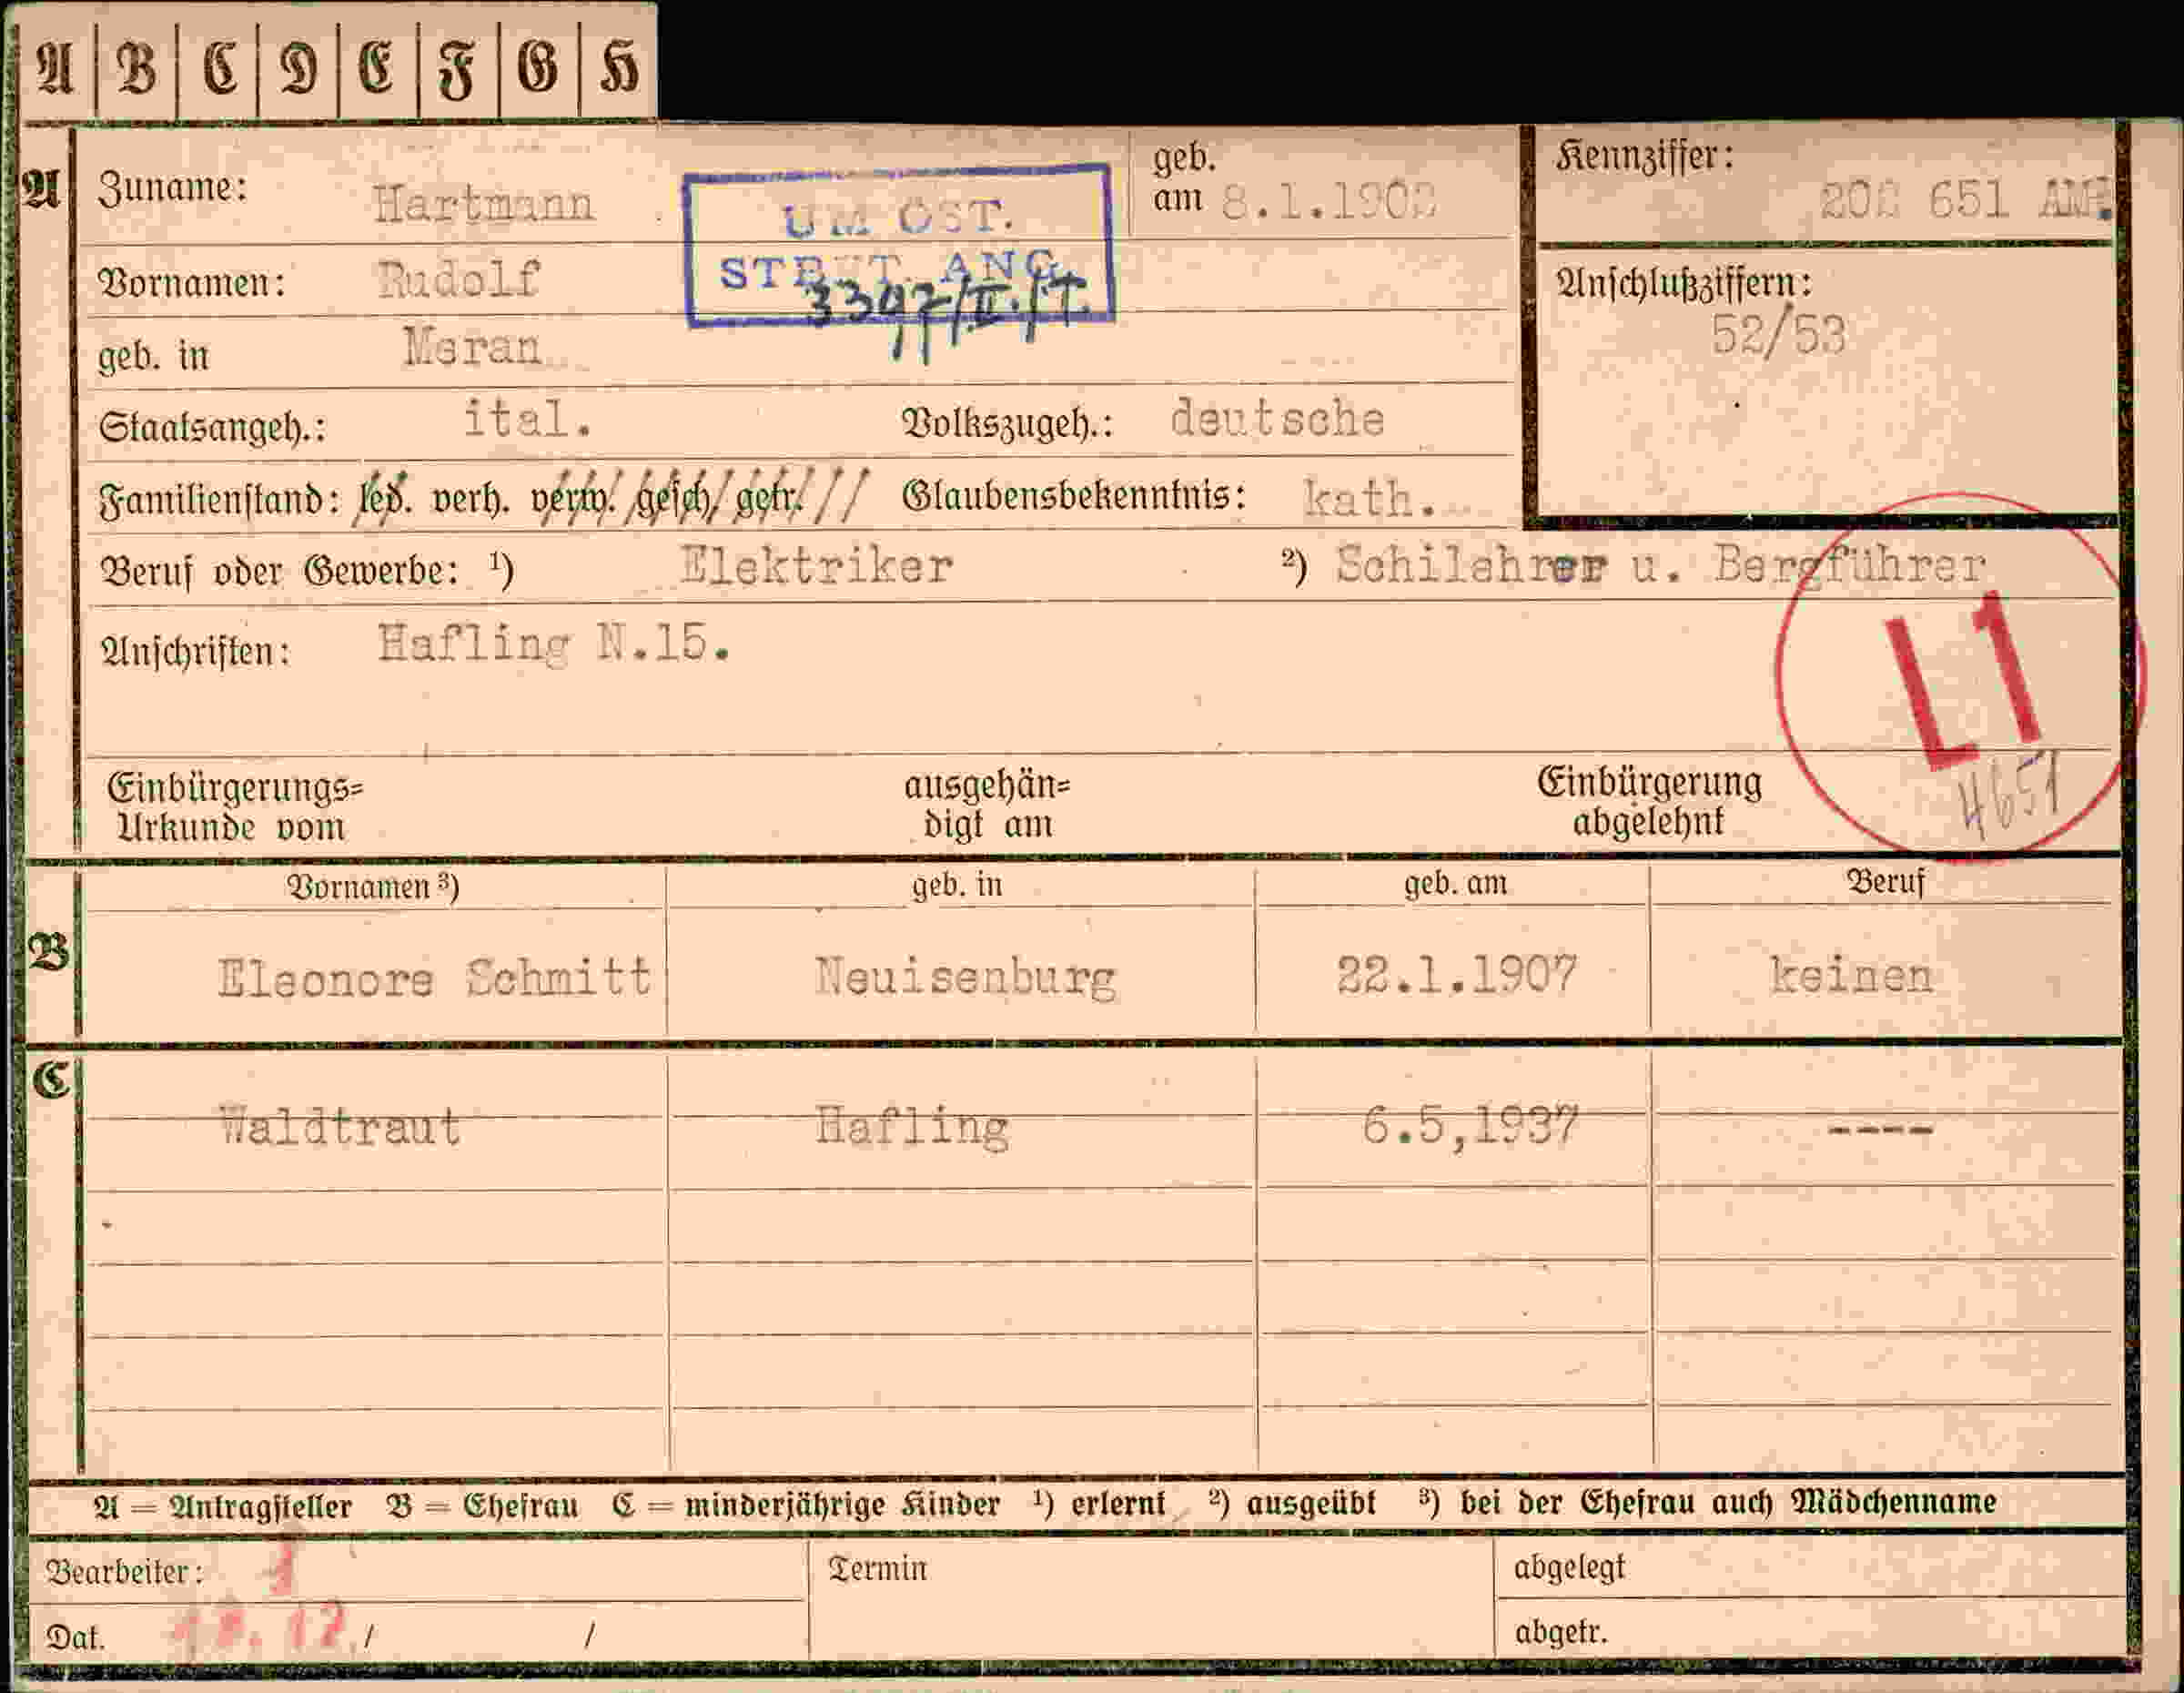 A B C D E F G H
A
Zuname: Hartmann
geb. am 8.1.190
Kennziffer: 651
UM OST.
STRT. ANG.
Vornamen: Rudolf
geb. in Meran
Anschlußziffern: 52/53
Staatsangeh.: ital. Volkszugeh.: deutsche
Familienstand: led. verh. verw. gesch. getr. Glaubensbekenntnis: kath.
Beruf oder Gewerbe: ¹) Elektriker ²) Schilehrer u. Bergführer
Anschriften: Hafling N.15.
L1
4651
Einbürgerungs=
Urkunde vom
ausgehän=
digt am
Einbürgerung
abgelehnt
B
Vornamen ³) geb. in geb. am Beruf
Eleonore Schmitt Neuisenburg 22.1.1907 keinen
C
Waldtraut Hafling 6.5,1937 ----
A = Antragsteller B = Ehefrau C = minderjährige Kinder ¹) erlernt ²) ausgeübt ³) bei der Ehefrau auch Mädchenname
Bearbeiter:
Termin
abgelegt
Dat. / /
abgetr.